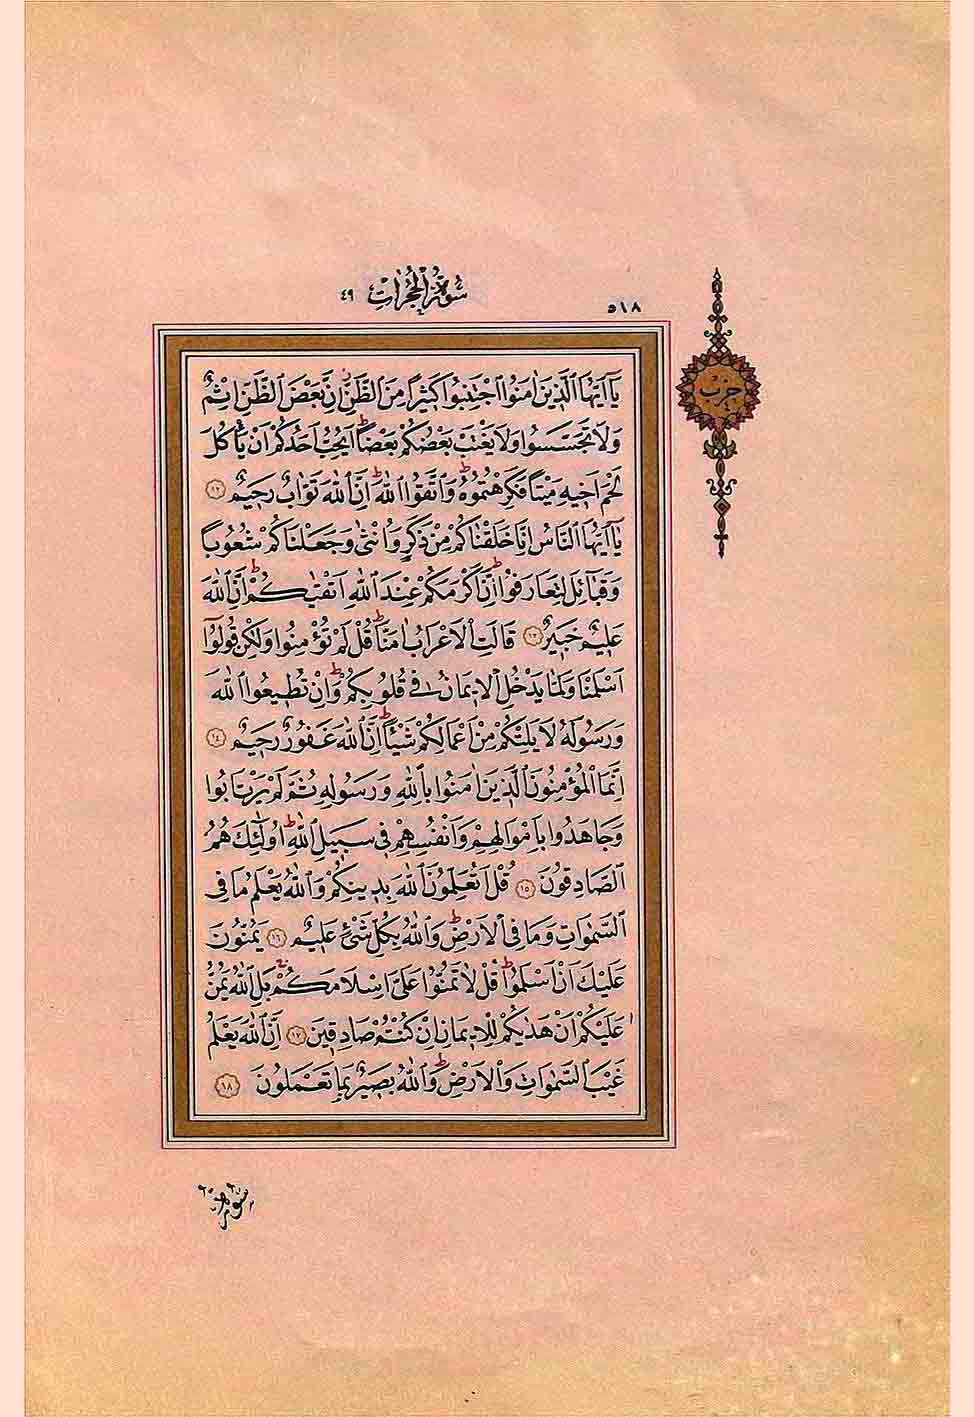 ٥١٨
سُورَةُ الْحُجُرَاتِ ٤٩
حزب
يَٓا اَيُّهَا الَّذ۪ينَ اٰمَنُوا اجْتَنِبُوا كَث۪يرًا مِنَ الظَّنِّۘ اِنَّ بَعْضَ الظَّنِّ اِثْمٌ
وَلَا تَجَسَّسُوا وَلَا يَغْتَبْ بَعْضُكُمْ بَعْضًاۜ اَيُحِبُّ اَحَدُكُمْ اَنْ يَأْكُلَ
لَحْمَ اَخ۪يهِ مَيْتًا فَكَرِهْتُمُوهُۜ وَاتَّقُوا اللّٰهَۜ اِنَّ اللّٰهَ تَوَّابٌ رَح۪يمٌ ﴿١٢﴾
يَٓا اَيُّهَا النَّاسُ اِنَّا خَلَقْنَاكُمْ مِنْ ذَكَرٍ وَاُنْثٰى وَجَعَلْنَاكُمْ شُعُوبًا
وَقَبَٓائِلَ لِتَعَارَفُواۜ اِنَّ اَكْرَمَكُمْ عِنْدَ اللّٰهِ اَتْقٰيكُمْۜ اِنَّ اللّٰهَ
عَل۪يمٌ خَب۪يرٌ ﴿١٣﴾ قَالَتِ الْاَعْرَابُ اٰمَنَّاۜ قُلْ لَمْ تُؤْمِنُوا وَلٰكِنْ قُولُٓوا
اَسْلَمْنَا وَلَمَّا يَدْخُلِ الْا۪يمَانُ ف۪ي قُلُوبِكُمْۜ وَاِنْ تُط۪يعُوا اللّٰهَ
وَرَسُولَهُ لَا يَلِتْكُمْ مِنْ اَعْمَالِكُمْ شَيْـًٔاۜ اِنَّ اللّٰهَ غَفُورٌ رَح۪يمٌ ﴿١٤﴾
اِنَّمَا الْمُؤْمِنُونَ الَّذ۪ينَ اٰمَنُوا بِاللّٰهِ وَرَسُولِه۪ ثُمَّ لَمْ يَرْتَابُوا
وَجَاهَدُوا بِاَمْوَالِهِمْ وَاَنْفُسِهِمْ ف۪ي سَب۪يلِ اللّٰهِۜ اُولٰٓئِكَ هُمُ
الصَّادِقُونَ ﴿١٥﴾ قُلْ اَتُعَلِّمُونَ اللّٰهَ بِد۪ينِكُمْ وَاللّٰهُ يَعْلَمُ مَا فِي
السَّمٰوَاتِ وَمَا فِي الْاَرْضِۜ وَاللّٰهُ بِكُلِّ شَيْءٍ عَل۪يمٌ ﴿١٦﴾ يَمُنُّونَ
عَلَيْكَ اَنْ اَسْلَمُواۜ قُلْ لَا تَمُنُّوا عَلَيَّ اِسْلَامَكُمْۚ بَلِ اللّٰهُ يَمُنُّ
عَلَيْكُمْ اَنْ هَدٰيكُمْ لِلْا۪يمَانِ اِنْ كُنْتُمْ صَادِق۪ينَ ﴿١٧﴾ اِنَّ اللّٰهَ يَعْلَمُ
غَيْبَ السَّمٰوَاتِ وَالْاَرْضِۜ وَاللّٰهُ بَص۪يرٌ بِمَا تَعْمَلُونَ ﴿١٨﴾